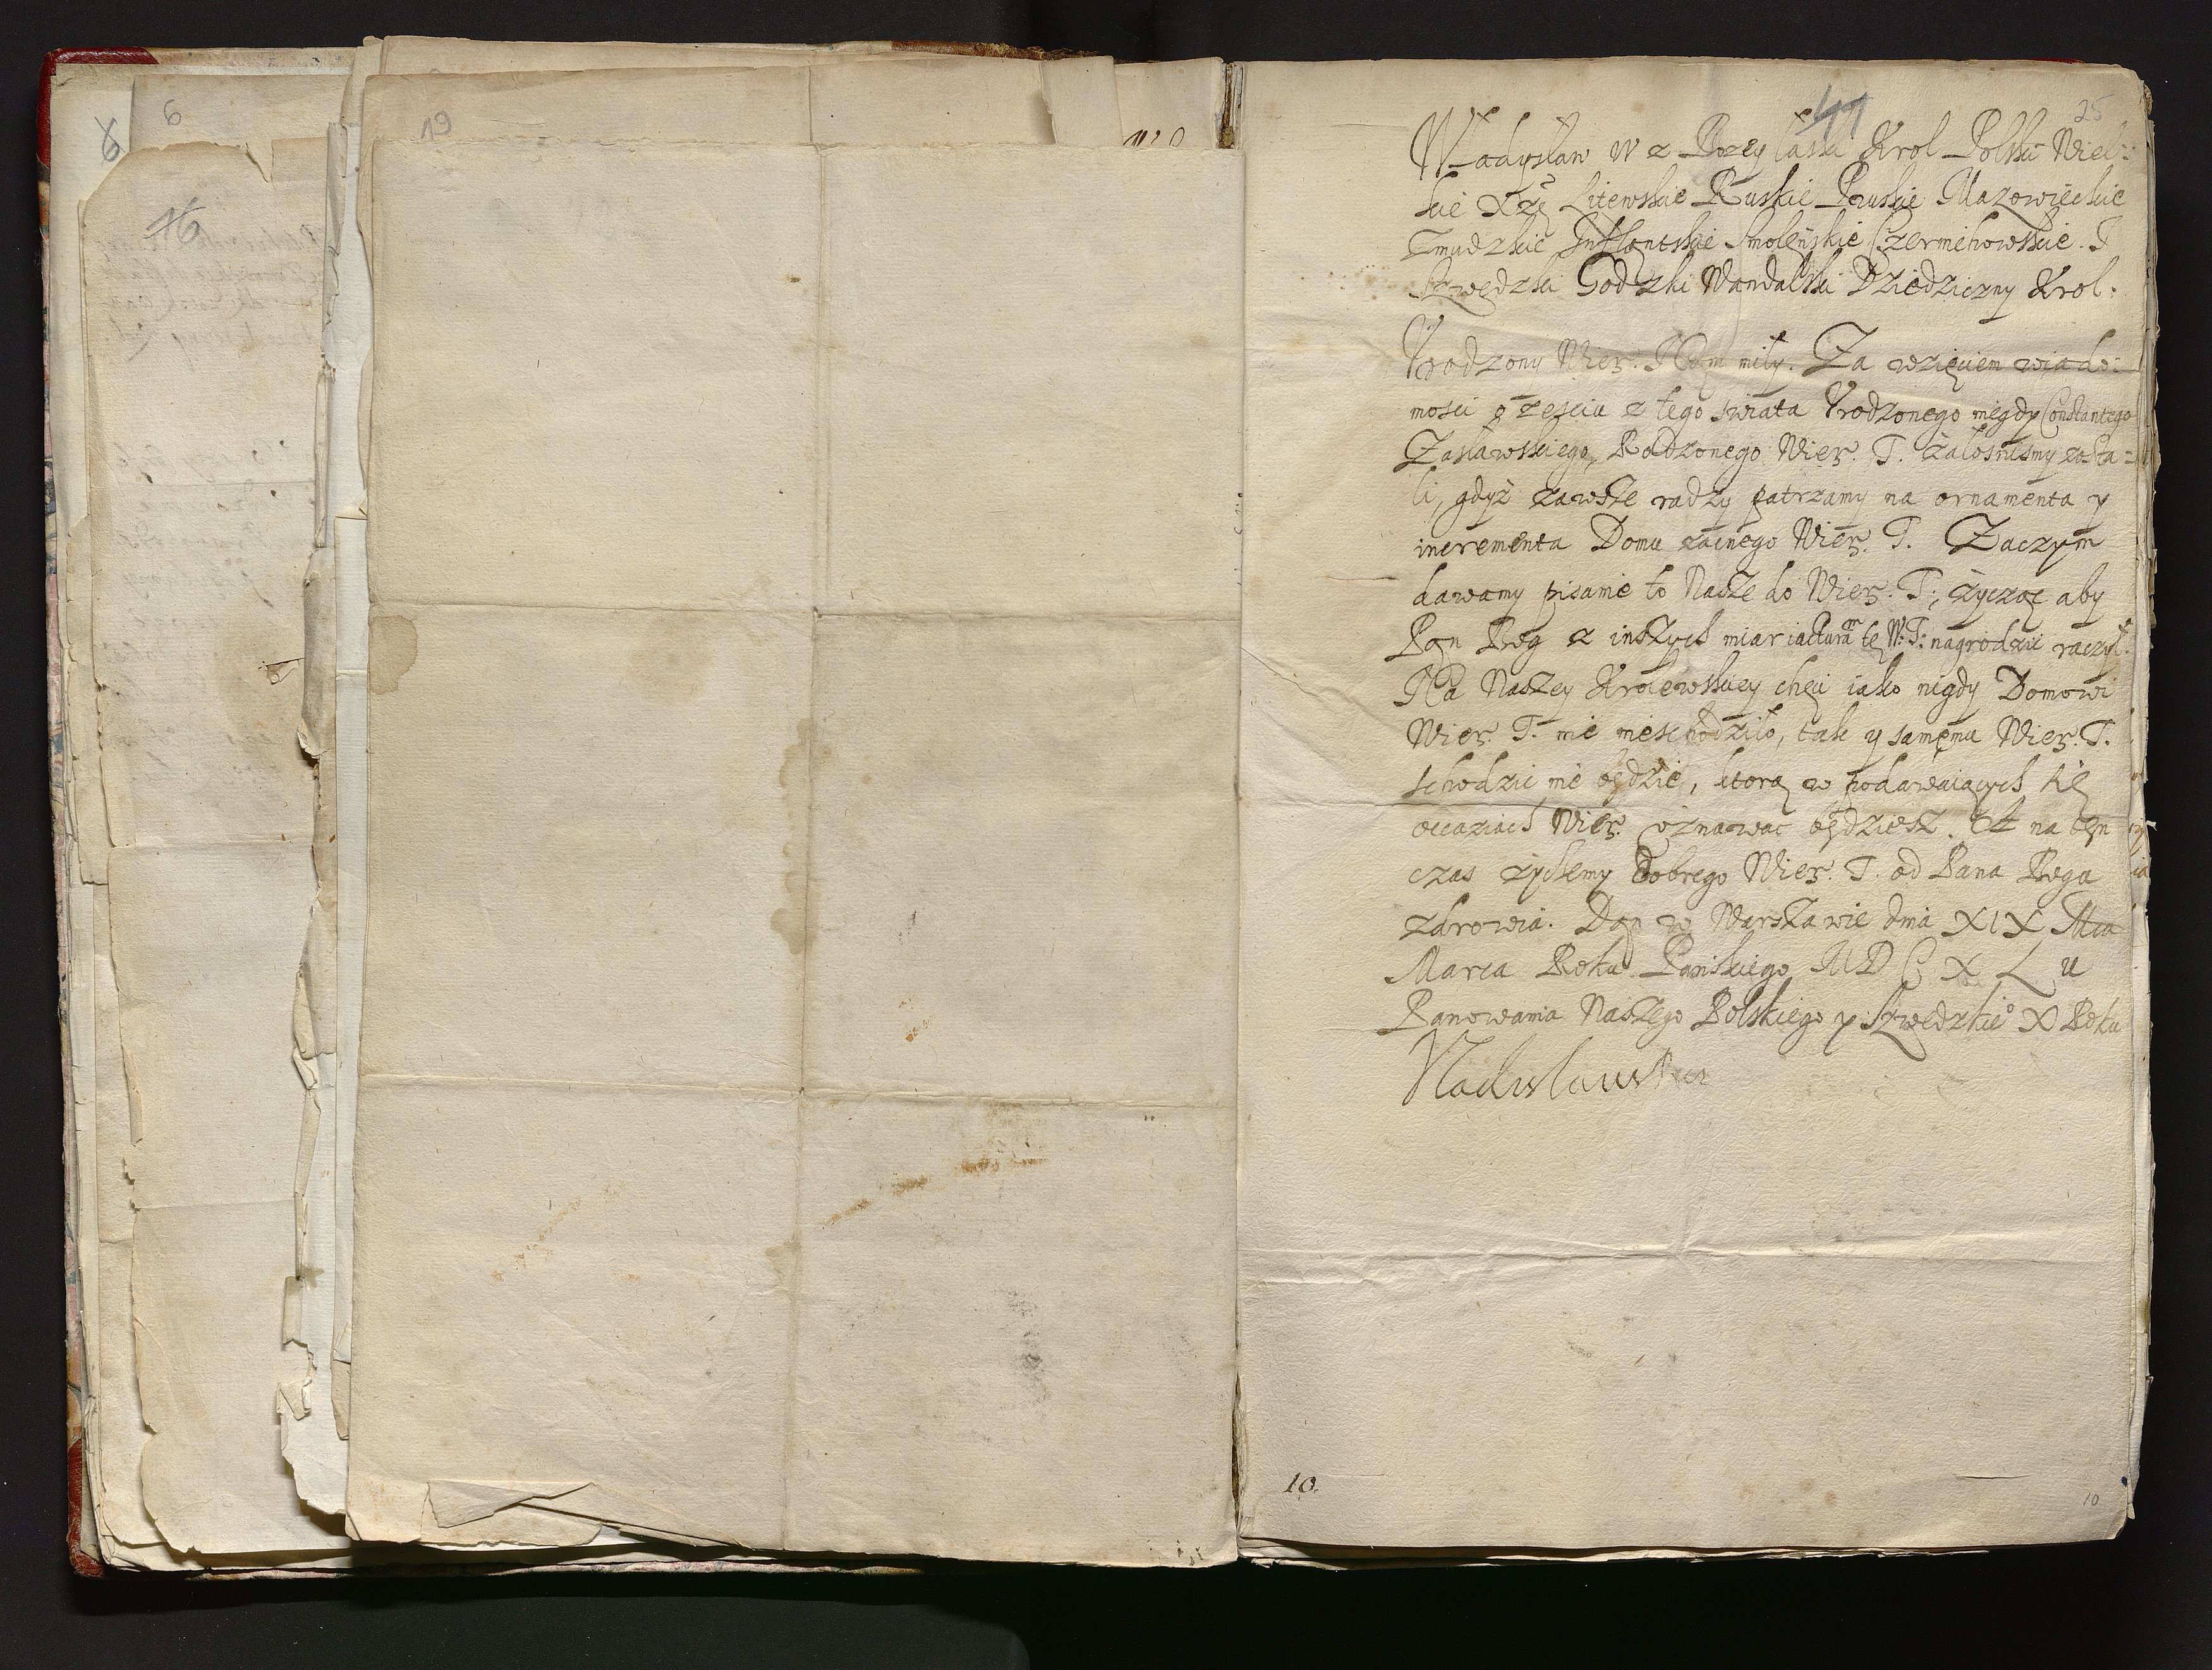 6
8
16
19
41
25
Władysław IV z Bozey łaski Krol Polski Wiel:
kie Xżę Litewskie Ruskie Pruskie Mazowieckie
Zmudzkie Inflantskie Smolenskie Czernichowskie. I
Szwedzki Godzki Wandalski Dziedziczny Krol.
Vrodzony Wier. Nam miły. Za wzięciem wiado:
mosci o zesciu z tego swiata Vrodzonego niegdy Constantego
Zasławskiego, Rodzonego Wier. T. załosnismy zosta=
li, gdyż zawsze radzy patrzamy na ornamenta y
incrementa Domu zacnego Wier. T. Zaczym
dawamy pisanie to Nasze do Wier. T., życząc aby
Pan Bog z inszych miar iacturam tę W. T. nagrodzić raczył.
Na Naszey Krolewskiey chęci iako nigdy Domowi
Wier. T. nie nieschodziło, tak y samemu Wier. T.
schodzić nie będzie, ktorą w podawaiących się
occaziach Wier. oznawac będziesz. A na ten
czas życzemy dobrego Wier. T. od Pana Boga
zdrowia. Dan w Warszawie dnia XIX Mca
Marca Roku Panskiego MDCXLII
Panowania Naszego Polskiego y Szwedzkieo X Roku
Vladislaus Rex
10.
10